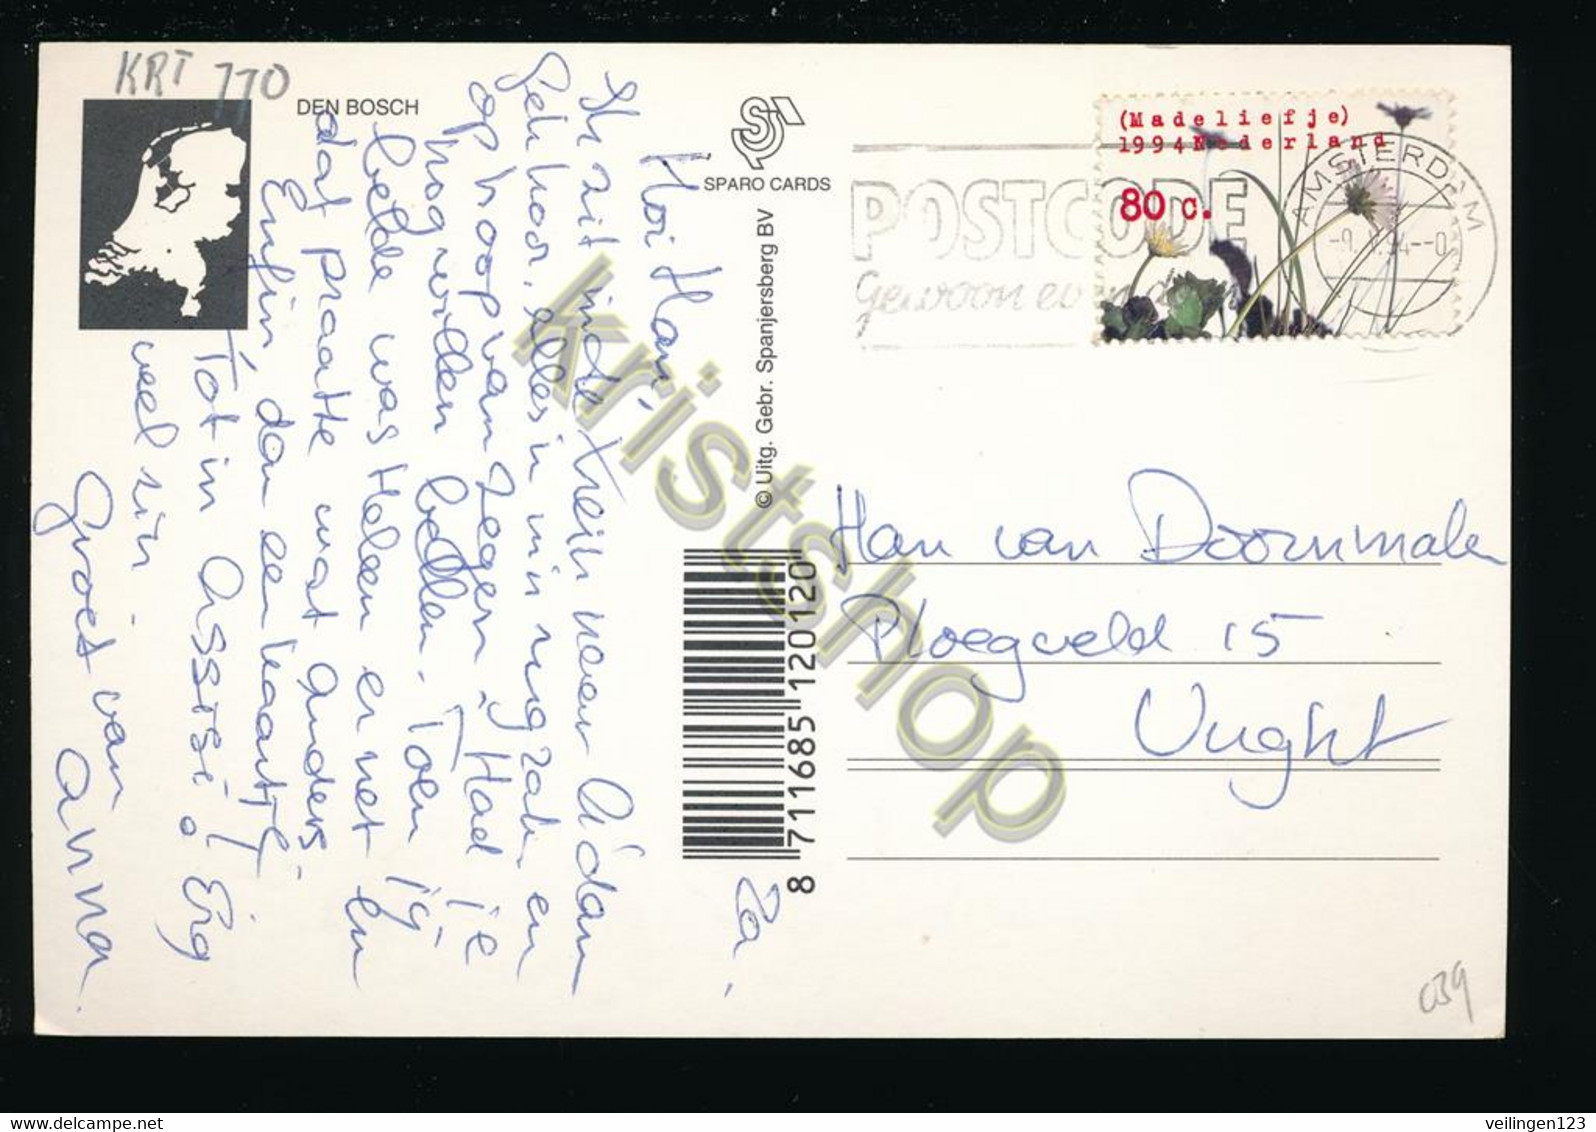 KRT 110
DEN BOSCH
SPARO CARDS
© Uitg. Gebr. Spanjersberg BV
8 711685 120120
Za.
Hoi Han,
Ik zit in de trein naar A'dam
Gek hoor, alles in m'n rugzak en
op hoop van zegen. Had je
nog willen bellen. Toen jij
belde was Heleen er net en
dat praatte wat anders.
Enfin, dan een kaartje
Tot in Assisi! Erg
veel zin
Groet van
Anna.
(Madeliefje)
1994 Nederland
80 c.
POSTCODE
Gewoon even
AMSTERDAM
Han van Doornmalen
Ploegveld 15
Vught
039
kristshop
veilingen123